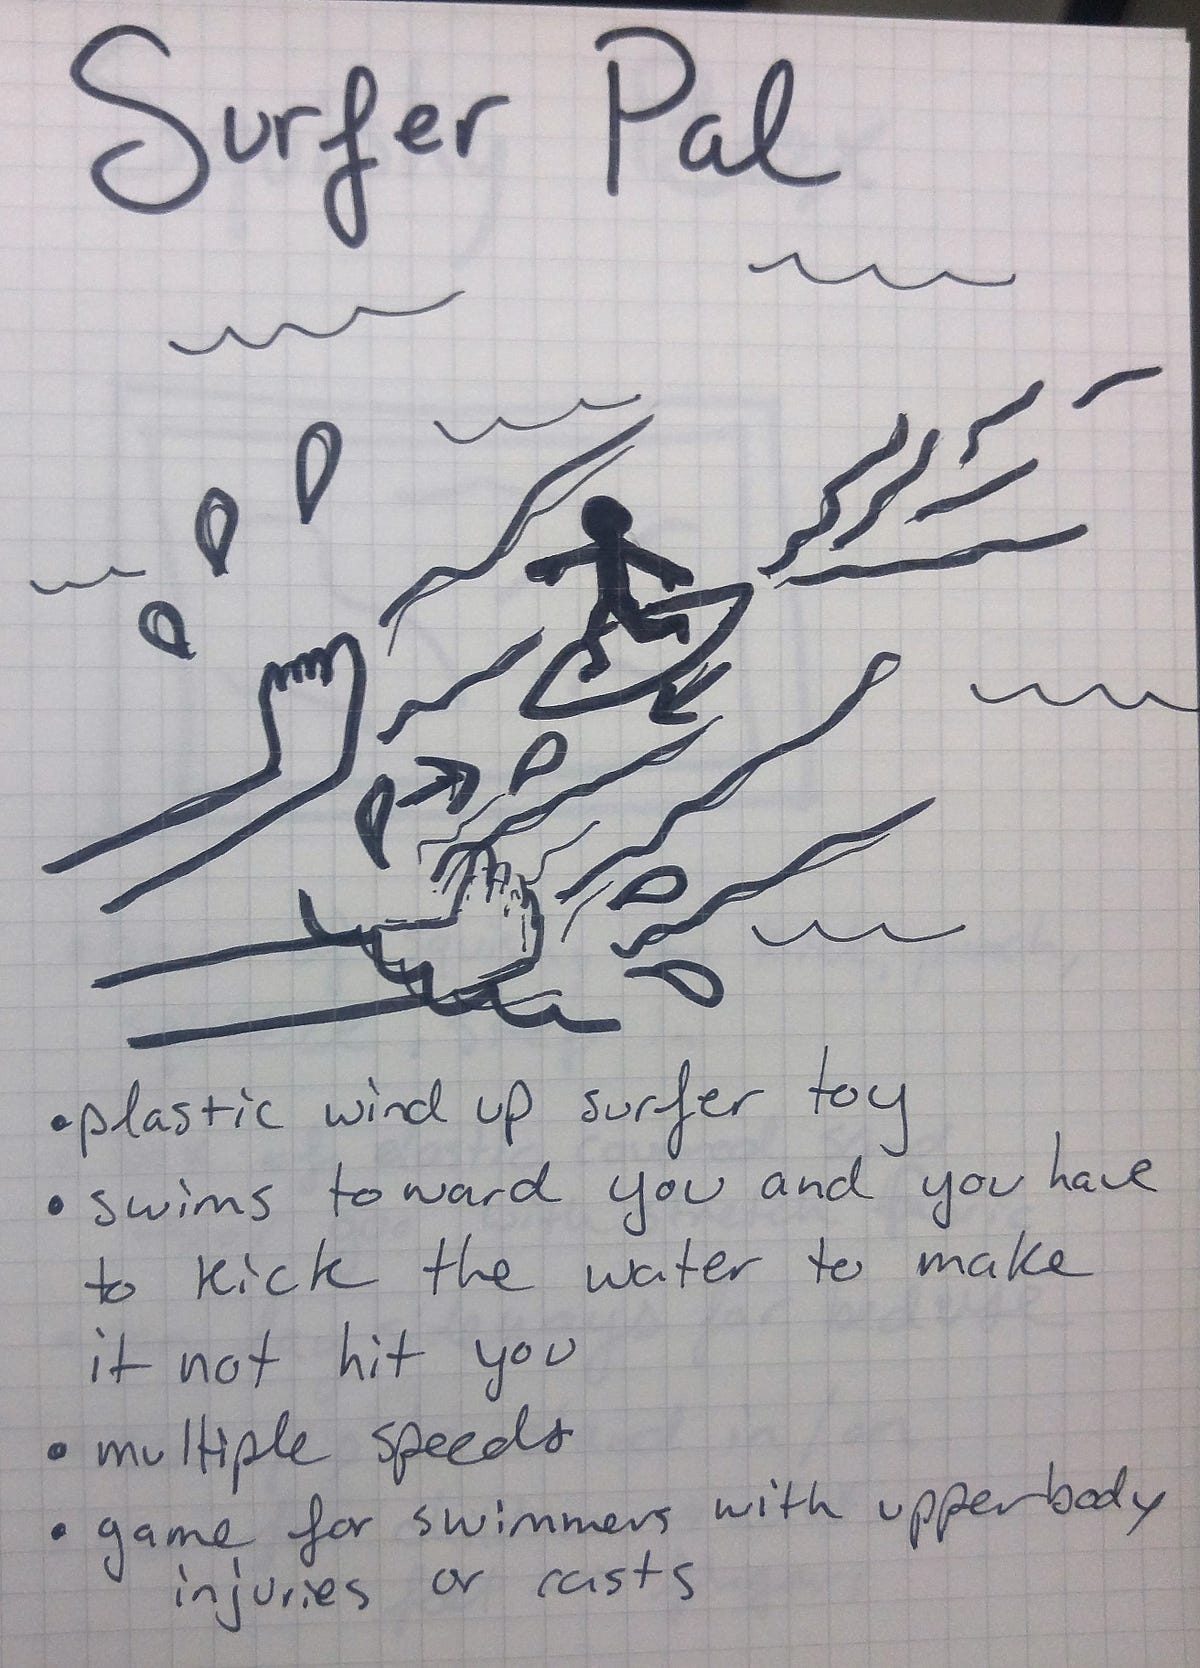 Surfer Pal
• plastic wind up surfer toy
• swims toward you and you have
to kick the water to make
it not hit you
• multiple speeds
• game for swimmers with upperbody
injuries or casts